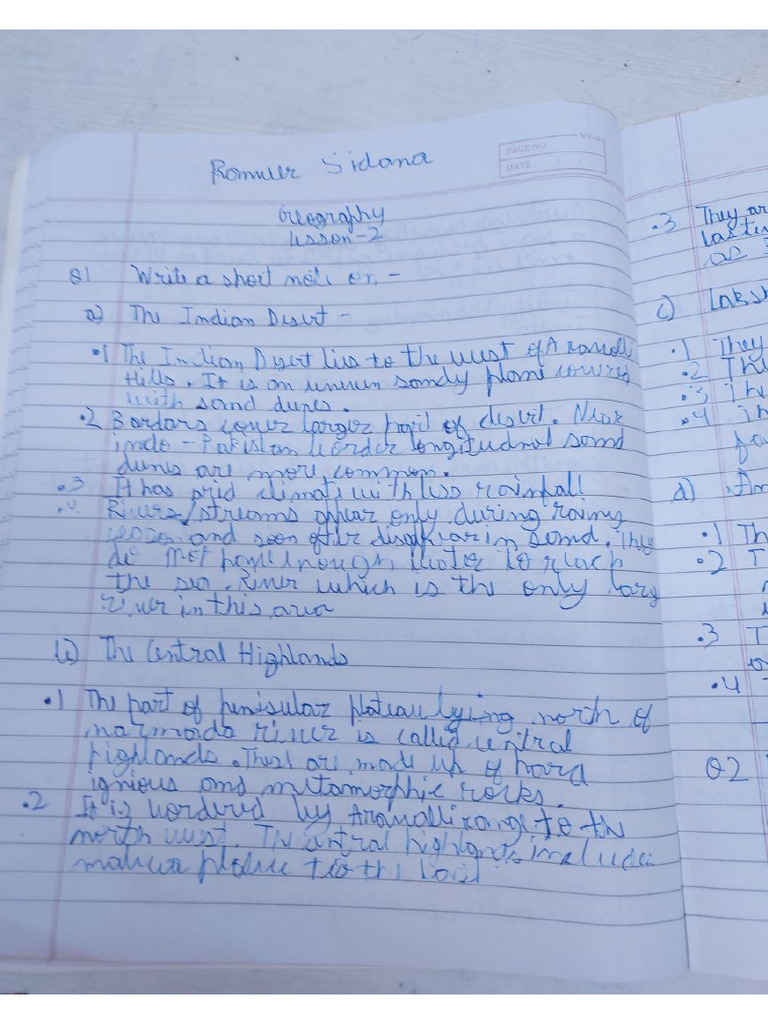 Sidana
PAGE NO.
DATE / /
Geography
Lesson-2
Q1 Write a short note on -
a) The Indian Desert -
.1 The Indian Desert lies to the west of Aravalli
Hills. It is an uneven sandy plane covered
with sand dunes.
.2 Cover larger part of desert. Near
indo - Pakistan border longitudnal sand
dunes are more common.
.3 It has arid climate with less rainfall
Rivers/streams appear only during rainy
and soon after disappear in sand. They
do not have enough water to reach
the sea. River which is the only larg
river in this area
b) The Central Highlands
.1 The part of penisular plateau lying north of
narmada river is called central
highlands. These are made up of hard
ignious and metamorphic rocks.
.2 It is bordered by Aravalli range to the
north west. The highlands include
malwa to the
.3 They are
as
c) Laksh
.1 They
.2 The
.3 The
.4 in
d)
.1 Th
.2 T
.3 T
.4
Q2